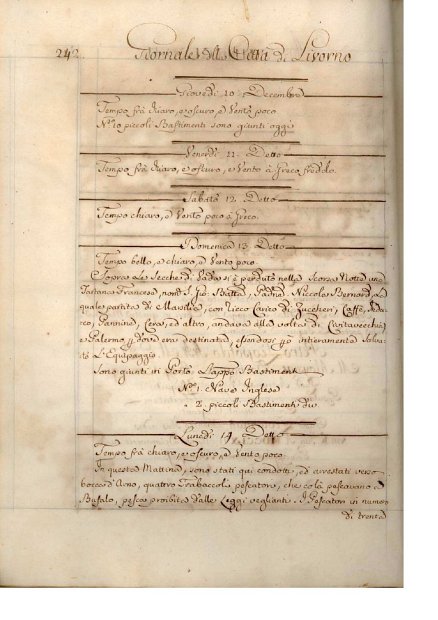 242. Giornale della Città di Livorno
Giovedì 10 Decembre
Tempo frà chiaro, e oscuro, e Vento poco
N.º 10 piccoli Bastimenti sono giunti oggi
Venerdì 11. Detto
Tempo frà chiaro, e oscuro, e Vento à Greco freddo.
Sabato 12 Detto
Tempo chiaro, e Vento poco à Greco.
Domenica 13 Detto
Tempo bello, e chiaro, e Vento poco
Sopra Le Secche di Vada si è perduta nella Scorsa Notte una
Tartana Francese, nom.ª S. Gio: Batta, Padne Niccolò Bernard, La
quale partita di Marsilia, con ricco Carico di Zuccheri, Caffè,
Pannine, Cera, ed altro, andava alla volta di Civitavecchia
e Palermo, p dove era destinata, essendosi però intieramente Salva-
to L'Equipaggio
Sono giunti in Porto L'appo Bastimenti
N.º 1. Nave Inglese
2. piccoli Bastimenti div
Lunedì 14 Detto
Tempo frà chiaro, e oscuro, e Vento poco
In questa Mattina, sono stati qui condotti, ed arrestati verso
bocca d'Arno, quattro Trabaccoli pescatori, che colà pescavano à
Bufalo, pesca proibita dalle Leggi veglianti. I Pescatori in numero
di trenta